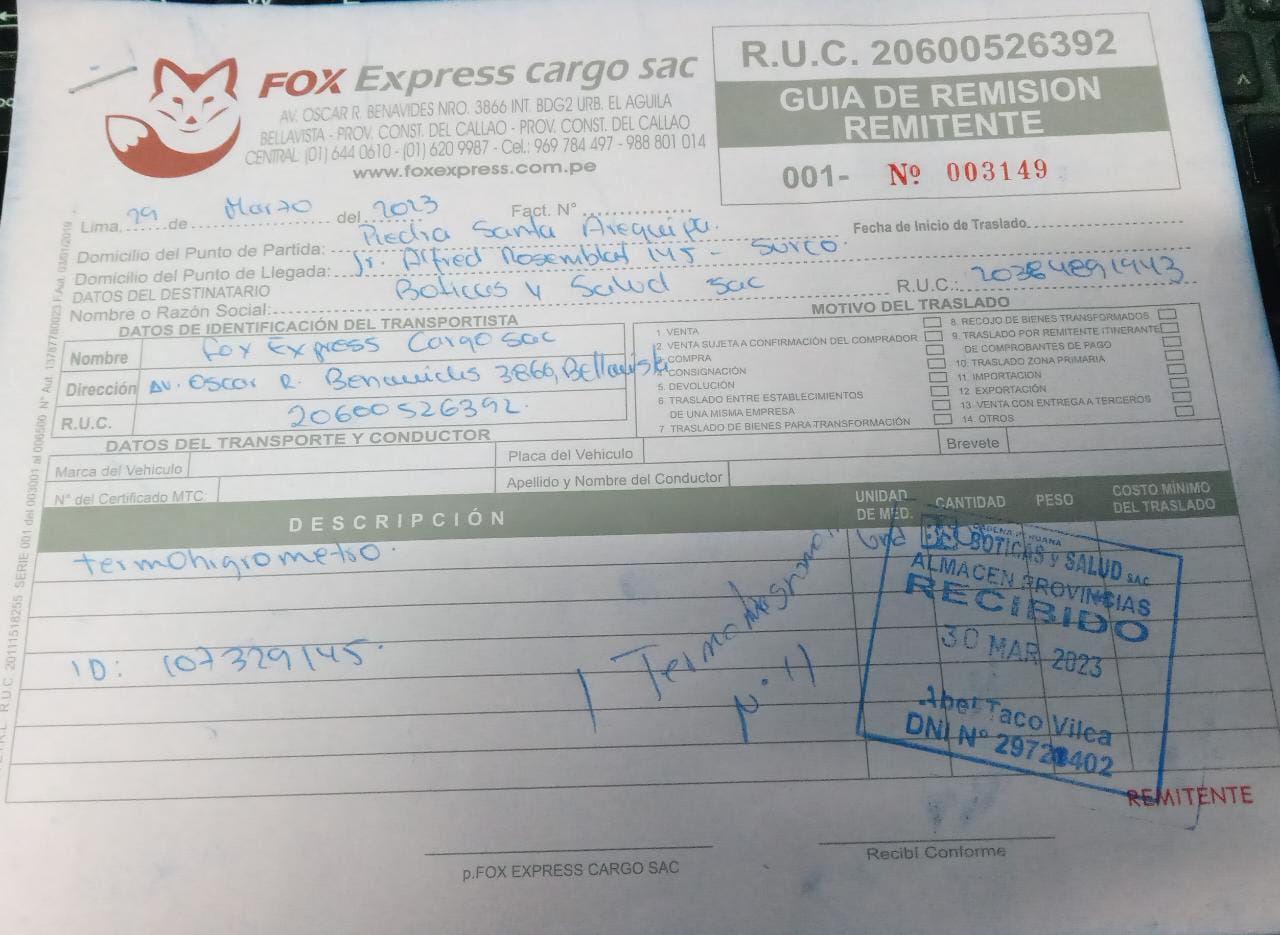 FOX Express cargo sac
AV. OSCAR R. BENAVIDES NRO. 3866 INT. BDG2 URB. EL AGUILA
BELLAVISTA - PROV. CONST. DEL CALLAO - PROV. CONST. DEL CALLAO
CENTRAL (01) 644 0610 - (01) 620 9987 - Cel.: 969 784 497 - 988 801 014
www.foxexpress.com.pe
R.U.C. 20600526392
GUIA DE REMISION
REMITENTE
001- Nº 003149
Lima, 29 de Marzo del 2023 Fact. N°
Fecha de Inicio de Traslado
Domicilio del Punto de Partida: Piedra Santa Arequipa.
Domicilio del Punto de Llegada: Jr. Alfred Rosemblat 145 - Surco.
DATOS DEL DESTINATARIO
Nombre o Razón Social: Boticas y Salud sac R.U.C.: 20384891943
DATOS DE IDENTIFICACIÓN DEL TRANSPORTISTA
Nombre Fox Express Cargo sac
Dirección Av. Oscar R. Benavides 3866, Bellavista
R.U.C. 20600526392.
MOTIVO DEL TRASLADO
1. VENTA
2. VENTA SUJETA A CONFIRMACIÓN DEL COMPRADOR
3. COMPRA
4. CONSIGNACIÓN
5. DEVOLUCIÓN
6. TRASLADO ENTRE ESTABLECIMIENTOS
DE UNA MISMA EMPRESA
7. TRASLADO DE BIENES PARA TRANSFORMACIÓN
8. RECOJO DE BIENES TRANSFORMADOS
9. TRASLADO POR REMITENTE ITINERANTE
DE COMPROBANTES DE PAGO
10. TRASLADO ZONA PRIMARIA
11. IMPORTACIÓN
12 EXPORTACIÓN
13 VENTA CON ENTREGA A TERCEROS
14 OTROS
DATOS DEL TRANSPORTE Y CONDUCTOR
Marca del Vehiculo
Placa del Vehiculo
Brevete
N° del Certificado MTC:
Apellido y Nombre del Conductor
DESCRIPCIÓN
UNIDAD
DE MED.
CANTIDAD
PESO
COSTO MÍNIMO
DEL TRASLADO
termohigrometro.
Und
ID: 107329145.
1 Termohigrometro
N° 11
CADENA PERUANA
BOTICAS y SALUD SAC
ALMACEN PROVINCIAS
RECIBIDO
30 MAR 2023
Abel Taco Vilca
REMITENTE
p.FOX EXPRESS CARGO SAC
Recibí Conforme
R.U.C. 20111518255 SERIE 001 del 003001 al 006500 N° Aut. 13787780023 F.Aut. 03/01/2019